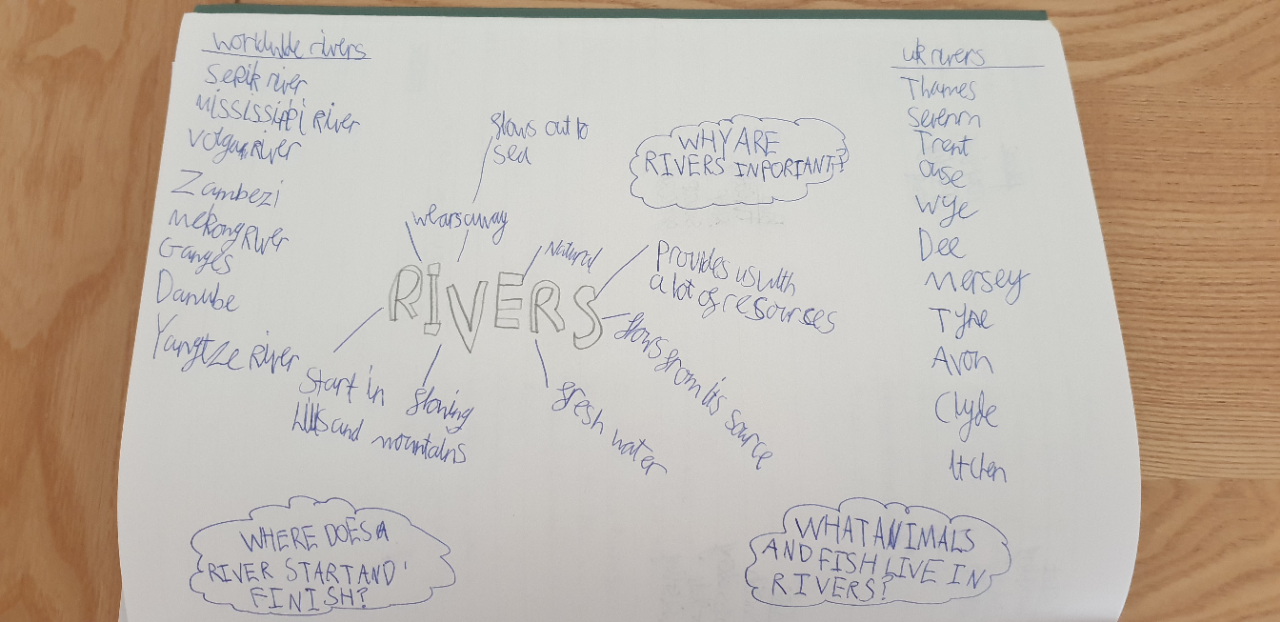 worldwide rivers
Sepik river
Mississippi River
Volgariver
Zambezi
Mekong River
Ganges
Danube
Yangtze River
flows out to
sea
wearsaway
Natural
Provides us with
a lot of resources
RIVERS
flows from its source
Start in
hills and mountains
flowing
fresh water
WHY ARE
RIVERS INPORIANT?
uk rivers
Thames
Severn
Trent
Ouse
Wye
Dee
Mersey
Tyne
Avon
Clyde
Itchen
WHERE DOES A
RIVER START AND
FINISH?
WHAT ANIMALS
AND FISH LIVE IN
RIVERS?